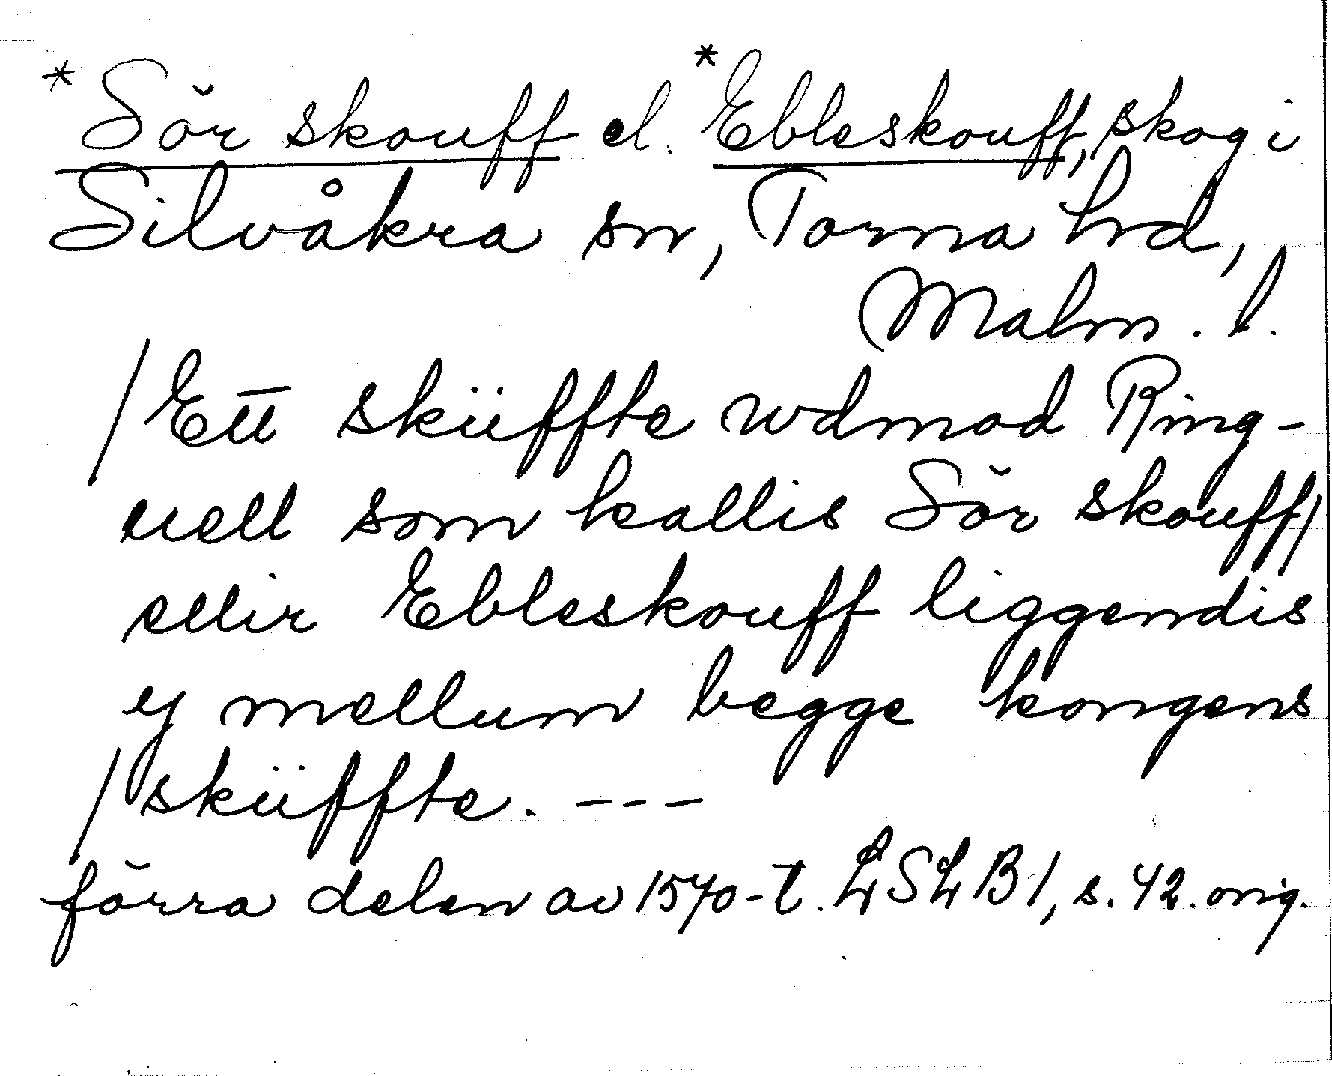 * Sör skouff el. * Ebleskouff, skog i
Silvåkra sn, Torna hd,
Malm. l.
/ Ett sküffte wdmod Ring-
uell som kallis Sör skouff /
ellir Ebleskouff liggendis
y mellum begge kongens
/ sküffte. ---
förra delen av 1570-t. LSLB 1, s. 42. orig.